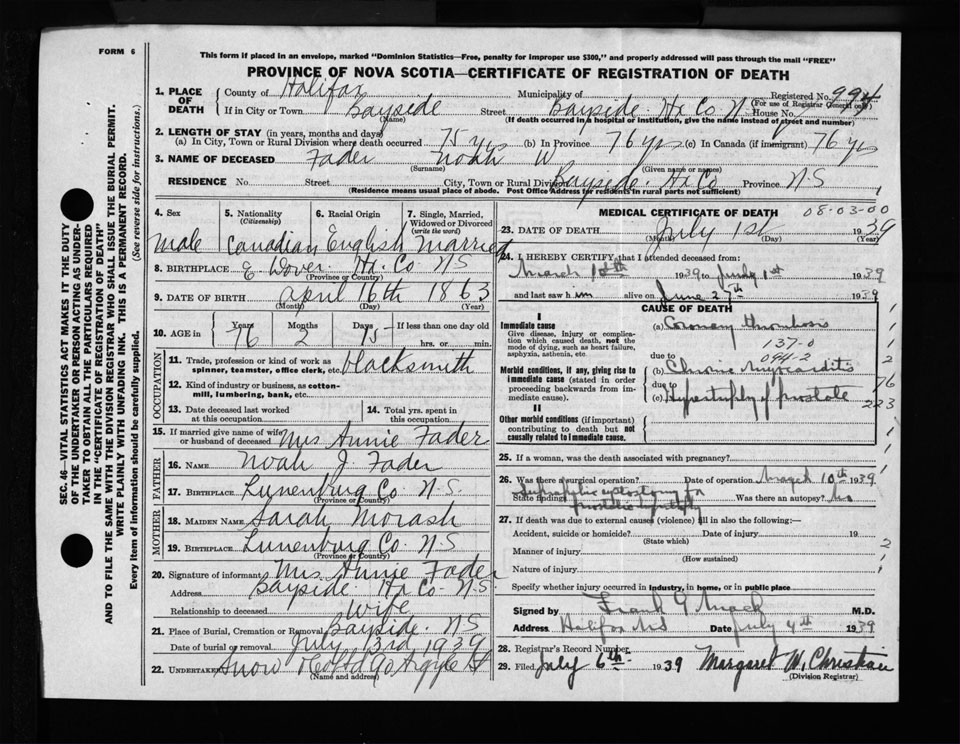 FORM 6
This form if placed in an envelope, marked "Dominion Statistics—Free, penalty for improper use $300," and properly addressed will pass through the mail "FREE"
PROVINCE OF NOVA SCOTIA—CERTIFICATE OF REGISTRATION OF DEATH
SEC. 46—VITAL STATISTICS ACT MAKES IT THE DUTY
OF THE UNDERTAKER OR PERSON ACTING AS UNDER-
TAKER TO OBTAIN ALL THE PARTICULARS REQUIRED
IN THE "CERTIFICATE OF REGISTRATION OF DEATH"
AND TO FILE THE SAME WITH THE DIVISION REGISTRAR WHO SHALL ISSUE THE BURIAL PERMIT.
WRITE PLAINLY WITH UNFADING INK. THIS IS A PERMANENT RECORD.
Every item of information should be carefully supplied. (See reverse side for instructions.)
1. PLACE OF DEATH County of Halifax Municipality of Registered No. 994
(For use of Registrar General only)
If in City or Town Bayside Street Bayside Hx Co N House No.
(Name) (If death occurred in a hospital or institution, give the name instead of street and number)
2. LENGTH OF STAY (in years, months and days)
(a) In City, Town or Rural Division where death occurred 75 yrs (b) In Province 76 yrs (c) In Canada (if immigrant) 76 yrs
3. NAME OF DECEASED Fader Noah W
(Surname) (Given name or names)
RESIDENCE No. Street City, Town or Rural Division Bayside Hx Co Province N S
(Residence means usual place of abode. Post Office Address for residents in rural parts not sufficient)
4. Sex Male
5. Nationality (Citizenship) Canadian
6. Racial Origin English
7. Single, Married, Widowed or Divorced (write the word) Married
8. BIRTHPLACE E. Dover Hx. Co N S
(Province or Country)
9. DATE OF BIRTH April 16th 1863
(Month) (Day) (Year)
10. AGE in Years 76 Months 2 Days 15 If less than one day old hrs. or min.
OCCUPATION
11. Trade, profession or kind of work as spinner, teamster, office clerk, etc. blacksmith
12. Kind of industry or business, as cotton-mill, lumbering, bank, etc.
13. Date deceased last worked at this occupation
14. Total yrs. spent in this occupation
15. If married give name of wife or husband of deceased Mrs Annie Fader
FATHER
16. NAME Noah J. Fader
17. BIRTHPLACE Lunenburg Co N.S
(Province or Country)
MOTHER
18. MAIDEN NAME Sarah Morash
19. BIRTHPLACE Lunenburg Co. N-S
(Province or Country)
20. Signature of informant Mrs Annie Fader
Address Bayside Hx Co N.S.
Relationship to deceased Wife
21. Place of Burial, Cremation or Removal Bayside. NS
Date of burial or removal July 3rd 1939
22. UNDERTAKER Snow & Co Ltd 90 Argyle St
(Name and address)
MEDICAL CERTIFICATE OF DEATH 08-03-00
23. DATE OF DEATH July 1st 1939
(Month) (Day) (Year)
24. I HEREBY CERTIFY that I attended deceased from:
March 1939 to July 1st 1939
and last saw him alive on June 27th 1939
CAUSE OF DEATH
I
Immediate cause (a) Coronary thrombosis
Give disease, injury or complication which caused death, not the mode of dying, such as heart failure, asphyxia, asthenia, etc.
137-0
due to 094-2
Morbid conditions, if any, giving rise to immediate cause (stated in order proceeding backwards from immediate cause). (b) Chronic Myocarditis
due to
(c) Hypertrophy of prostate
76
223
II
Other morbid conditions (if important) contributing to death but not causally related to immediate cause.
25. If a woman, was the death associated with pregnancy?
26. Was there a surgical operation? Date of operation March 10th 1939
State findings Suprapubic cystostomy for Was there an autopsy? No
prostatic hypertrophy
27. If death was due to external causes (violence) fill in also the following:—
Accident, suicide or homicide? Date of injury 19
(State which)
Manner of injury
(How sustained)
Nature of injury
Specify whether injury occurred in industry, in home, or in public place
Signed by Frank G Mack M.D.
Address Halifax NS Date July 4th 1939
28. Registrar's Record Number
29. Filed July 6th 1939 Margaret W. Christian
(Division Registrar)